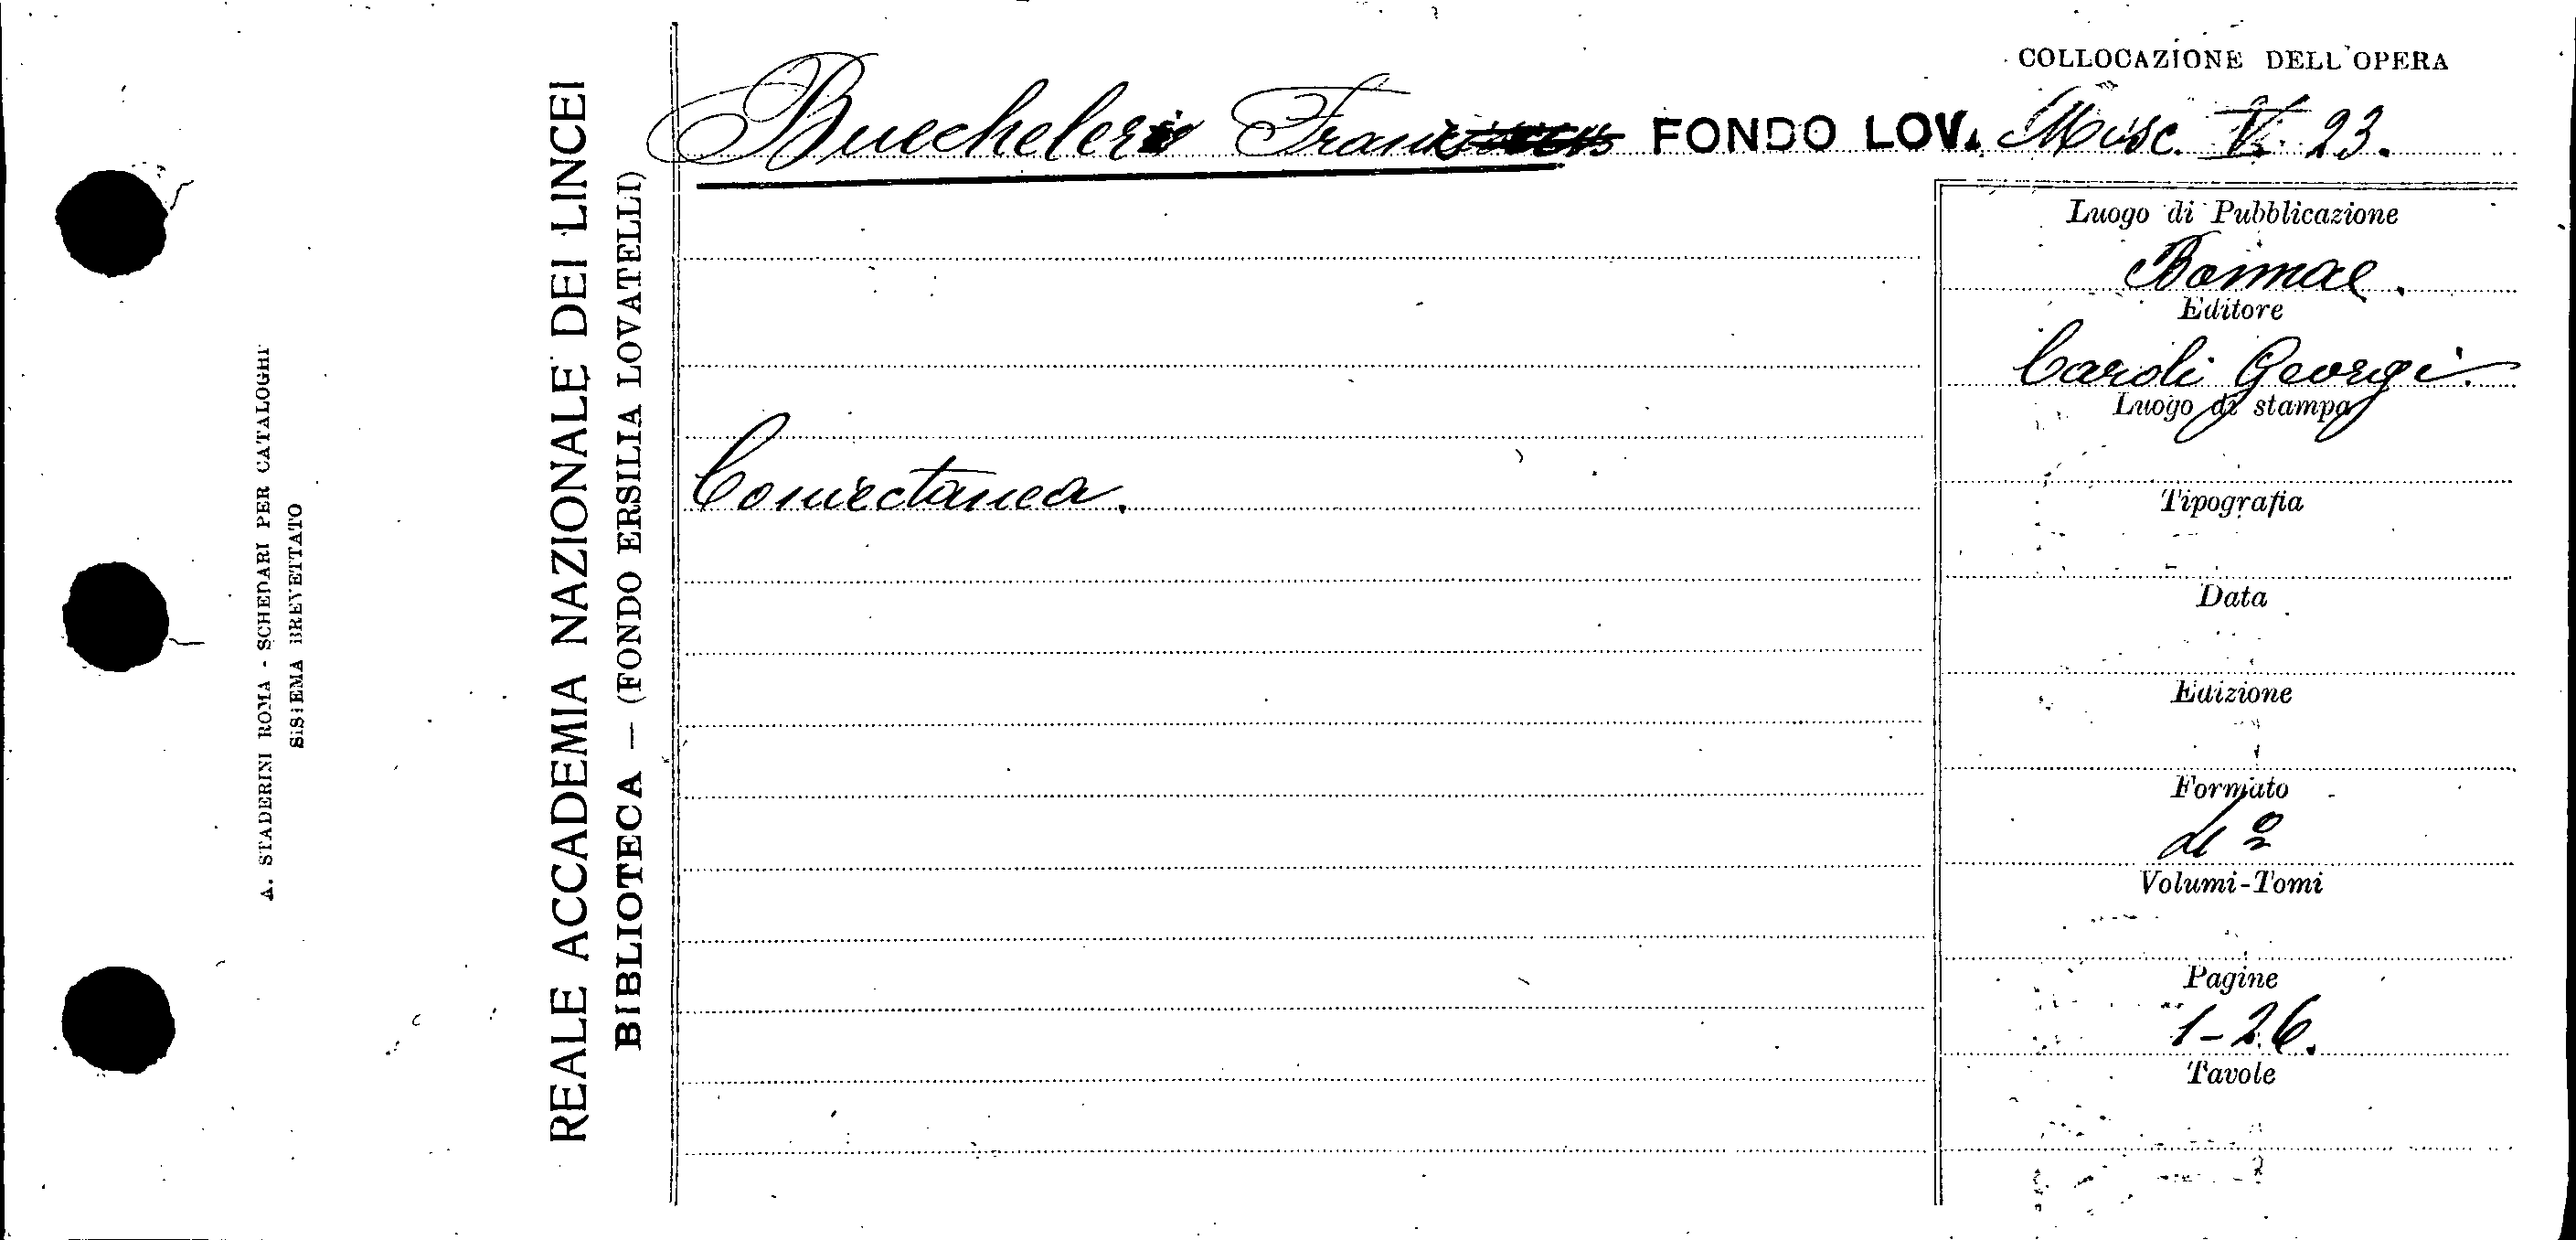 COLLOCAZIONE DELL'OPERA
Buecheler Franc FONDO LOV. Misc. V. 23.
Luogo di Pubblicazione
Bonnae.
Editore
Caroli Georgi.
Luogo di stampa
Coniectanea.
Tipografia
Data
Edizione
Formato
Volumi-Tomi
Pagine
1-26.
Tavole
REALE ACCADEMIA NAZIONALE DEI LINCEI
BIBLIOTECA — (FONDO ERSILIA LOVATELLI)
A. STADERINI ROMA - SCHEDARI PER CATALOGHI
SISTEMA BREVETTATO